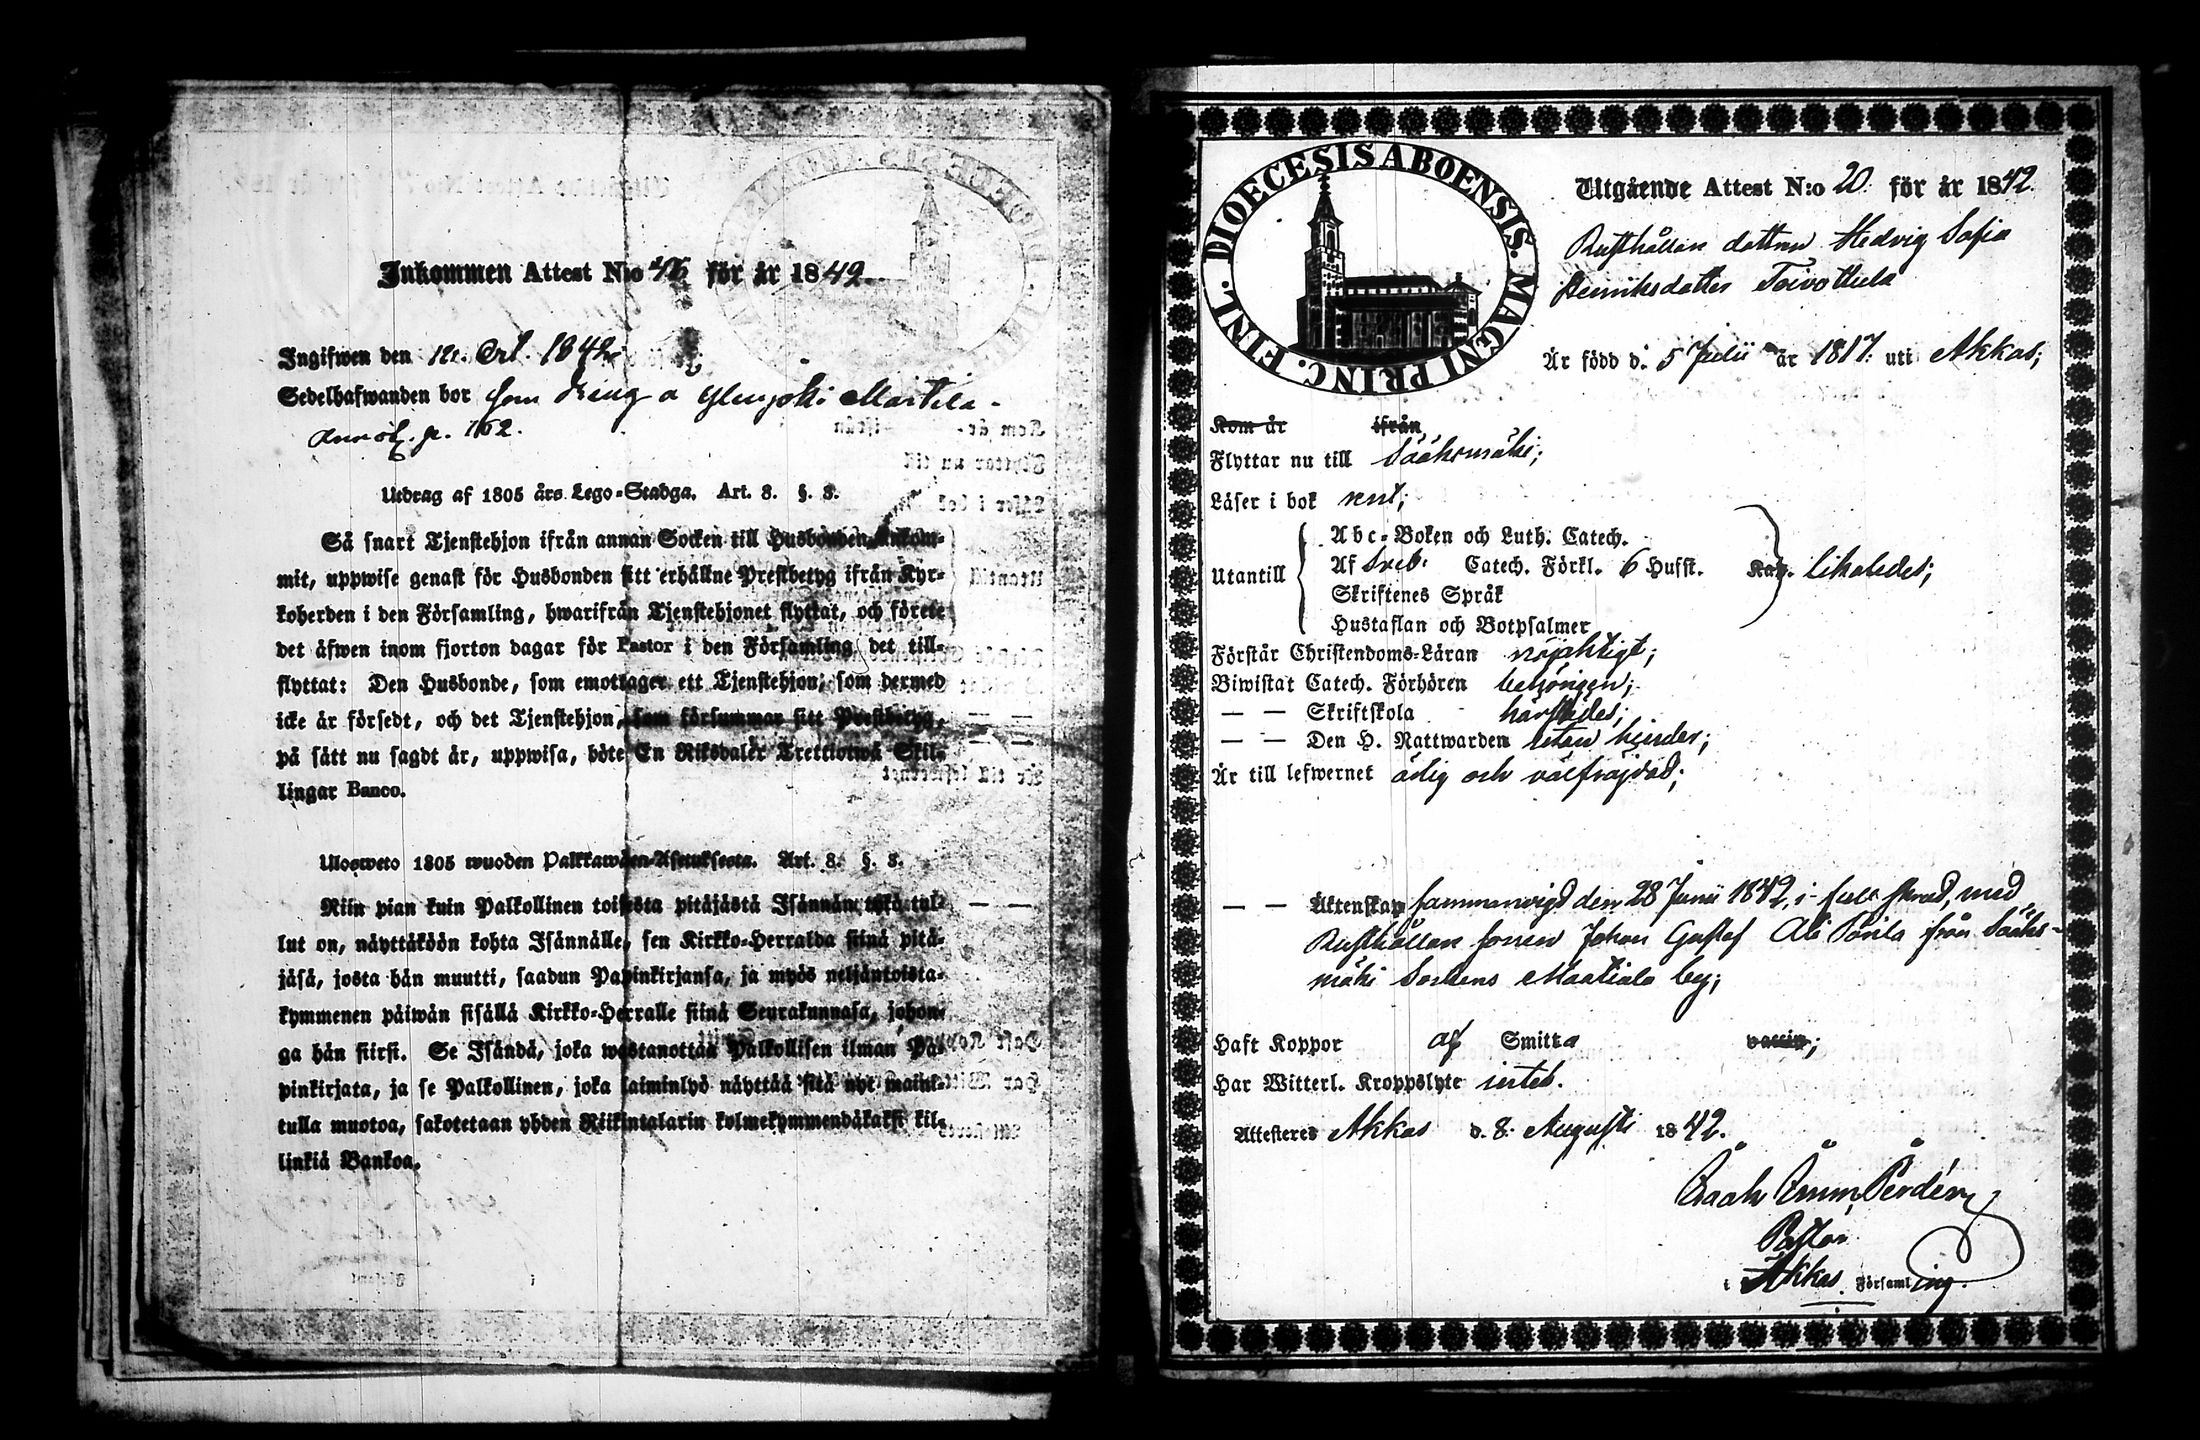 Inkommen Attest N:o 46 för år 1842.
Ingifwen den 12. Oct. 1842.
Sedelhafwanden bor som Piug a Ylenjoki Marttila
p. 162.
Utdrag af 1805 års Lego-Stadga. Art. 8. §. 3.
Så snart Tjenstehjon ifrån annan Socken till Husbonden ankom-
mit, uppwise genast för Husbonden sitt erhållne Prestbetyg ifrån Kyr-
koherden i den Församling, hwarifrån Tjenstehjonet flyttat, och förete
det äfwen inom fjorton dagar för Pastor i den Församling det till-
flyttat: Den Husbonde, som emottager ett Tjenstehjon, som dermed
icke är försedt, och det Tjenstehjon, som försummar sitt Prestbetyg,
på sätt nu sagdt är, uppwisa, böte En Riksdaler Trettiotwå Skil-
lingar Banco.
Ulosweto 1805 wuoden Palkkawäen-Asetuksesta. Art. 8. §. 3.
Niin pian kuin Palkollinen toisesta pitäjästä Isännän tykö tul-
lut on, näyttäköön kohta Isännälle, sen Kirkko-Herralda siinä pitä-
jäsä, josta hän muutti, saadun Papinkirjansa, ja myös neljäntoista-
kymmenen päiwän sisällä Kirkko-Herralle siinä Seurakunnasa, johon-
ga hän siirsi. Se Isändä, joka wastanottaa Palkollisen ilman Pa-
pinkirjata, ja se Palkollinen, joka laiminlyö näyttää sitä nyt maini-
tulla muotoa, sakotetaan yhden Riikintalarin kolmekymmendäkaksi kil-
linkiä Bankoa.
DIOECESIS ABOENSIS. MAGNI PRINC. FINL.
Utgående Attest N:o 20 för år 1842.
Rusthållare dottren Hedvig Sofia
Henriksdotter Toivottula
Är född d. 5 Julii år 1817. uti Akkas;
Kom år ifrån
Flyttar nu till Sääksmäki;
Läser i bok rent;
Utantill
Abc-Boken och Luth. Catech.
Af Sveb. Catech. Förkl. 6 Hufst. Kap. likaledes;
Skriftenes Språk
Hustaflan och Botpsalmer
Förstår Christendoms-Läran nöjaktigt;
Biwistat Catech. Förhören behörigen;
— — Skriftskola härstädes;
— — Den H. Nattwarden utan hinder;
Är till lefwernet ärlig och välfräjdad;
— — Äktenskap sammanvigd den 28 Junii 1842, i fullt stånd, med
Rusthållare sonen Johan Gustaf Ali Sönla från Sääks-
mäki Sockens Maatiala by;
Haft Koppor af Smitta vaccin;
Har Witterl. Kroppslyte intet.
Attesteres Akkas d. 8. Augusti 1842.
Isaak Emm. Perdén
Pastor
i Akkas Församling.